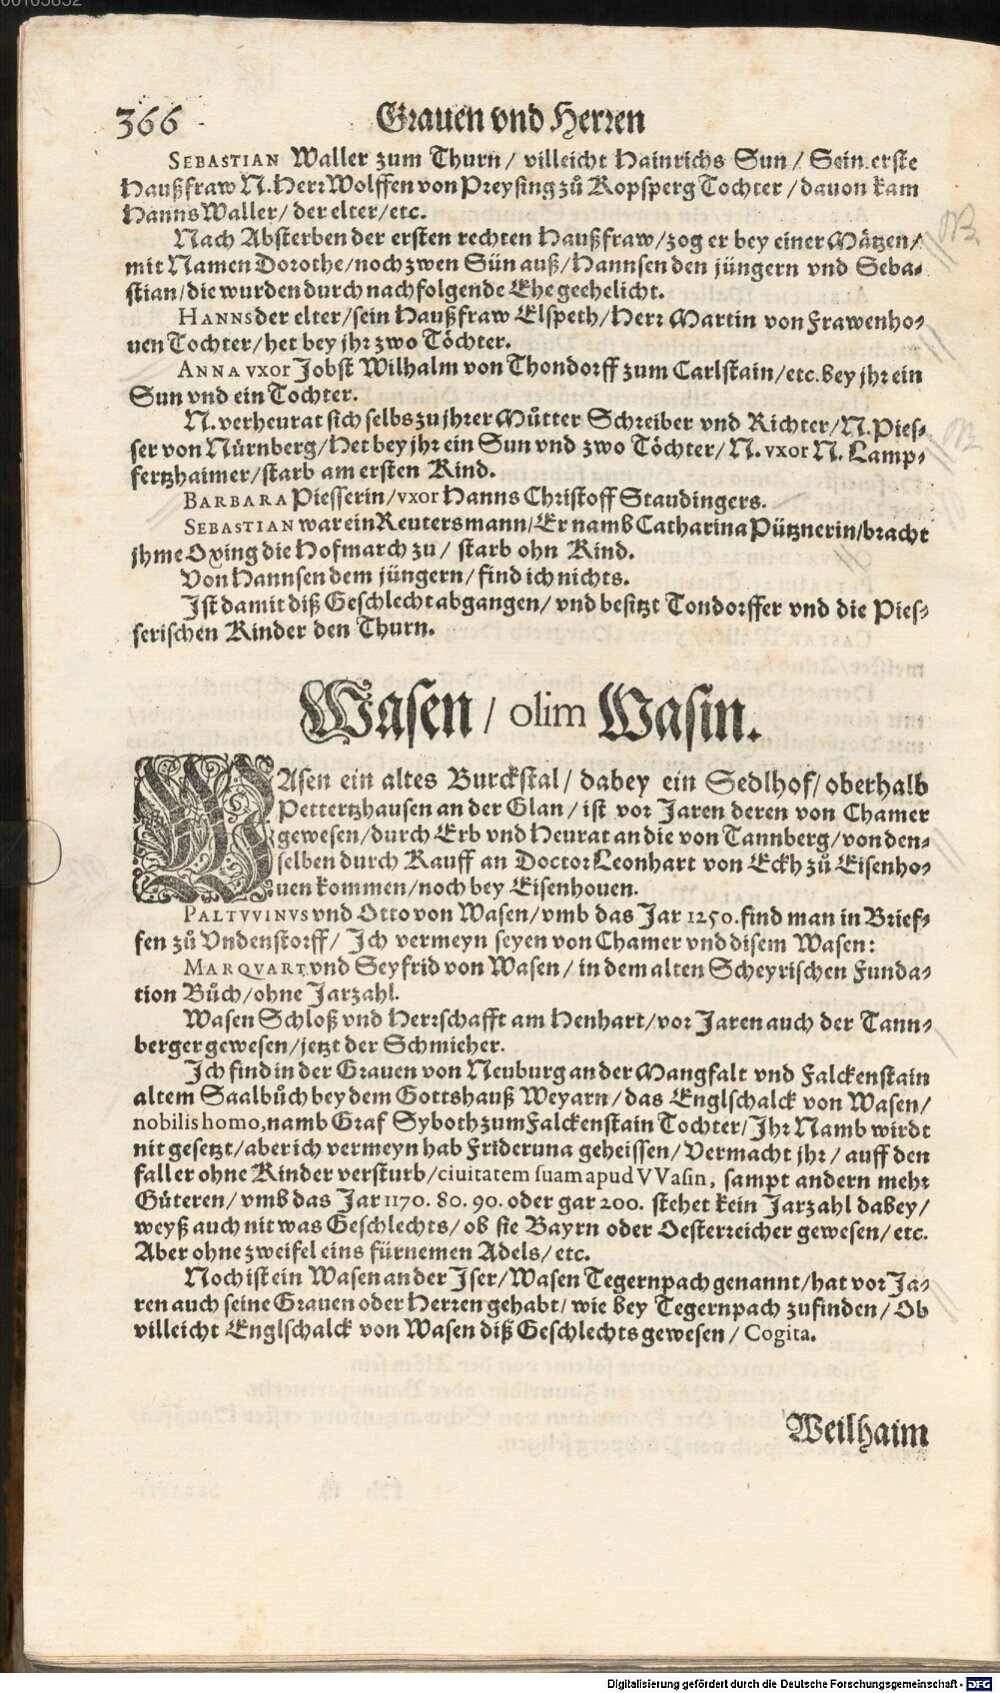 366 Grauen vnd Herren
SEBASTIAN Waller zum Thurn / villeicht Hainrichs Sun / Sein erste
Haußfraw N. Herr Wolffen von Preysing zů Kopsperg Tochter / dauon kam
Hanns Waller / der elter / etc.
Nach Absterben der ersten rechten Haußfraw / zog er bey einer Mätzen /
mit Namen Dorothe / noch zwen Sün auß / Hannsen den jüngern vnd Seba-
stian / die wurden durch nachfolgende Ehe geehelicht.
HANNS der elter / sein Haußfraw Elspeth / Herr Martin von Frawenho-
uen Tochter / het bey jhr zwo Töchter.
ANNA vxor Jobst Wilhalm von Thondorff zum Carlstain / etc. bey jhr ein
Sun vnd ein Tochter.
N. verheurat sich selbs zu jhrer Můtter Schreiber vnd Richter / N. Pies-
ser von Nürnberg / Het bey jhr ein Sun vnd zwo Töchter / N. vxor N. Lamp-
fertzhaimer / starb am ersten Kind.
BARBARA Piesserin / vxor Hanns Christoff Staudingers.
SEBASTIAN war ein Reutersmann / Er namb Catharina Pütznerin / bracht
jhme Oxing die Hofmarch zu / starb ohn Kind.
Von Hannsen dem jüngern / find ich nichts.
Ist damit diß Geschlecht abgangen / vnd besitzt Tondorffer vnd die Pies-
serischen Kinder den Thurn.
Wasen / olim Wasin.
WAsen ein altes Burckstal / dabey ein Sedlhof / oberhalb
Pettertzhausen an der Glan / ist vor Jaren deren von Chamer
gewesen / durch Erb vnd Heurat an die von Tannberg / von den-
selben durch Kauff an Doctor Leonhart von Eckh zů Eisenho-
uen kommen / noch bey Eisenhouen.
PALTVVINVS vnd Otto von Wasen / vmb das Jar 1250. find man in Brief-
fen zů Vndenstorff / Ich vermeyn seyen von Chamer vnd disem Wasen:
MARQVART vnd Seyfrid von Wasen / in dem alten Scheyrischen Funda-
tion Bůch / ohne Jarzahl.
Wasen Schloß vnd Herrschafft am Henhart / vor Jaren auch der Tann-
berger gewesen / jetzt der Schmicher.
Ich find in der Grauen von Neuburg an der Mangfalt vnd Falckenstain
altem Saalbůch bey dem Gottshauß Weyarn / das Englschalck von Wasen /
nobilis homo, namb Graf Syboth zum Falckenstain Tochter / Ihr Namb wirdt
nit gesetzt / aber ich vermeyn hab Friderunа geheissen / Vermacht jhr / auff den
fall er ohne Kinder versturb / ciuitatem suam apud VVasin, sampt andern mehr
Güteren / vmb das Jar 1170. 80. 90. oder gar 200. stehet kein Jarzahl dabey /
weyß auch nit was Geschlechts / ob sie Bayrn oder Oesterreicher gewesen / etc.
Aber ohne zweifel eins fürnemen Adels / etc.
Noch ist ein Wasen an der Iser / Wasen Tegernpach genannt / hat vor Ja-
ren auch seine Grauen oder Herren gehabt / wie bey Tegernpach zufinden / Ob
villeicht Englschalck von Wasen diß Geschlechts gewesen / Cogita.
Weilhaim
Digitalisierung gefördert durch die Deutsche Forschungsgemeinschaft - DFG